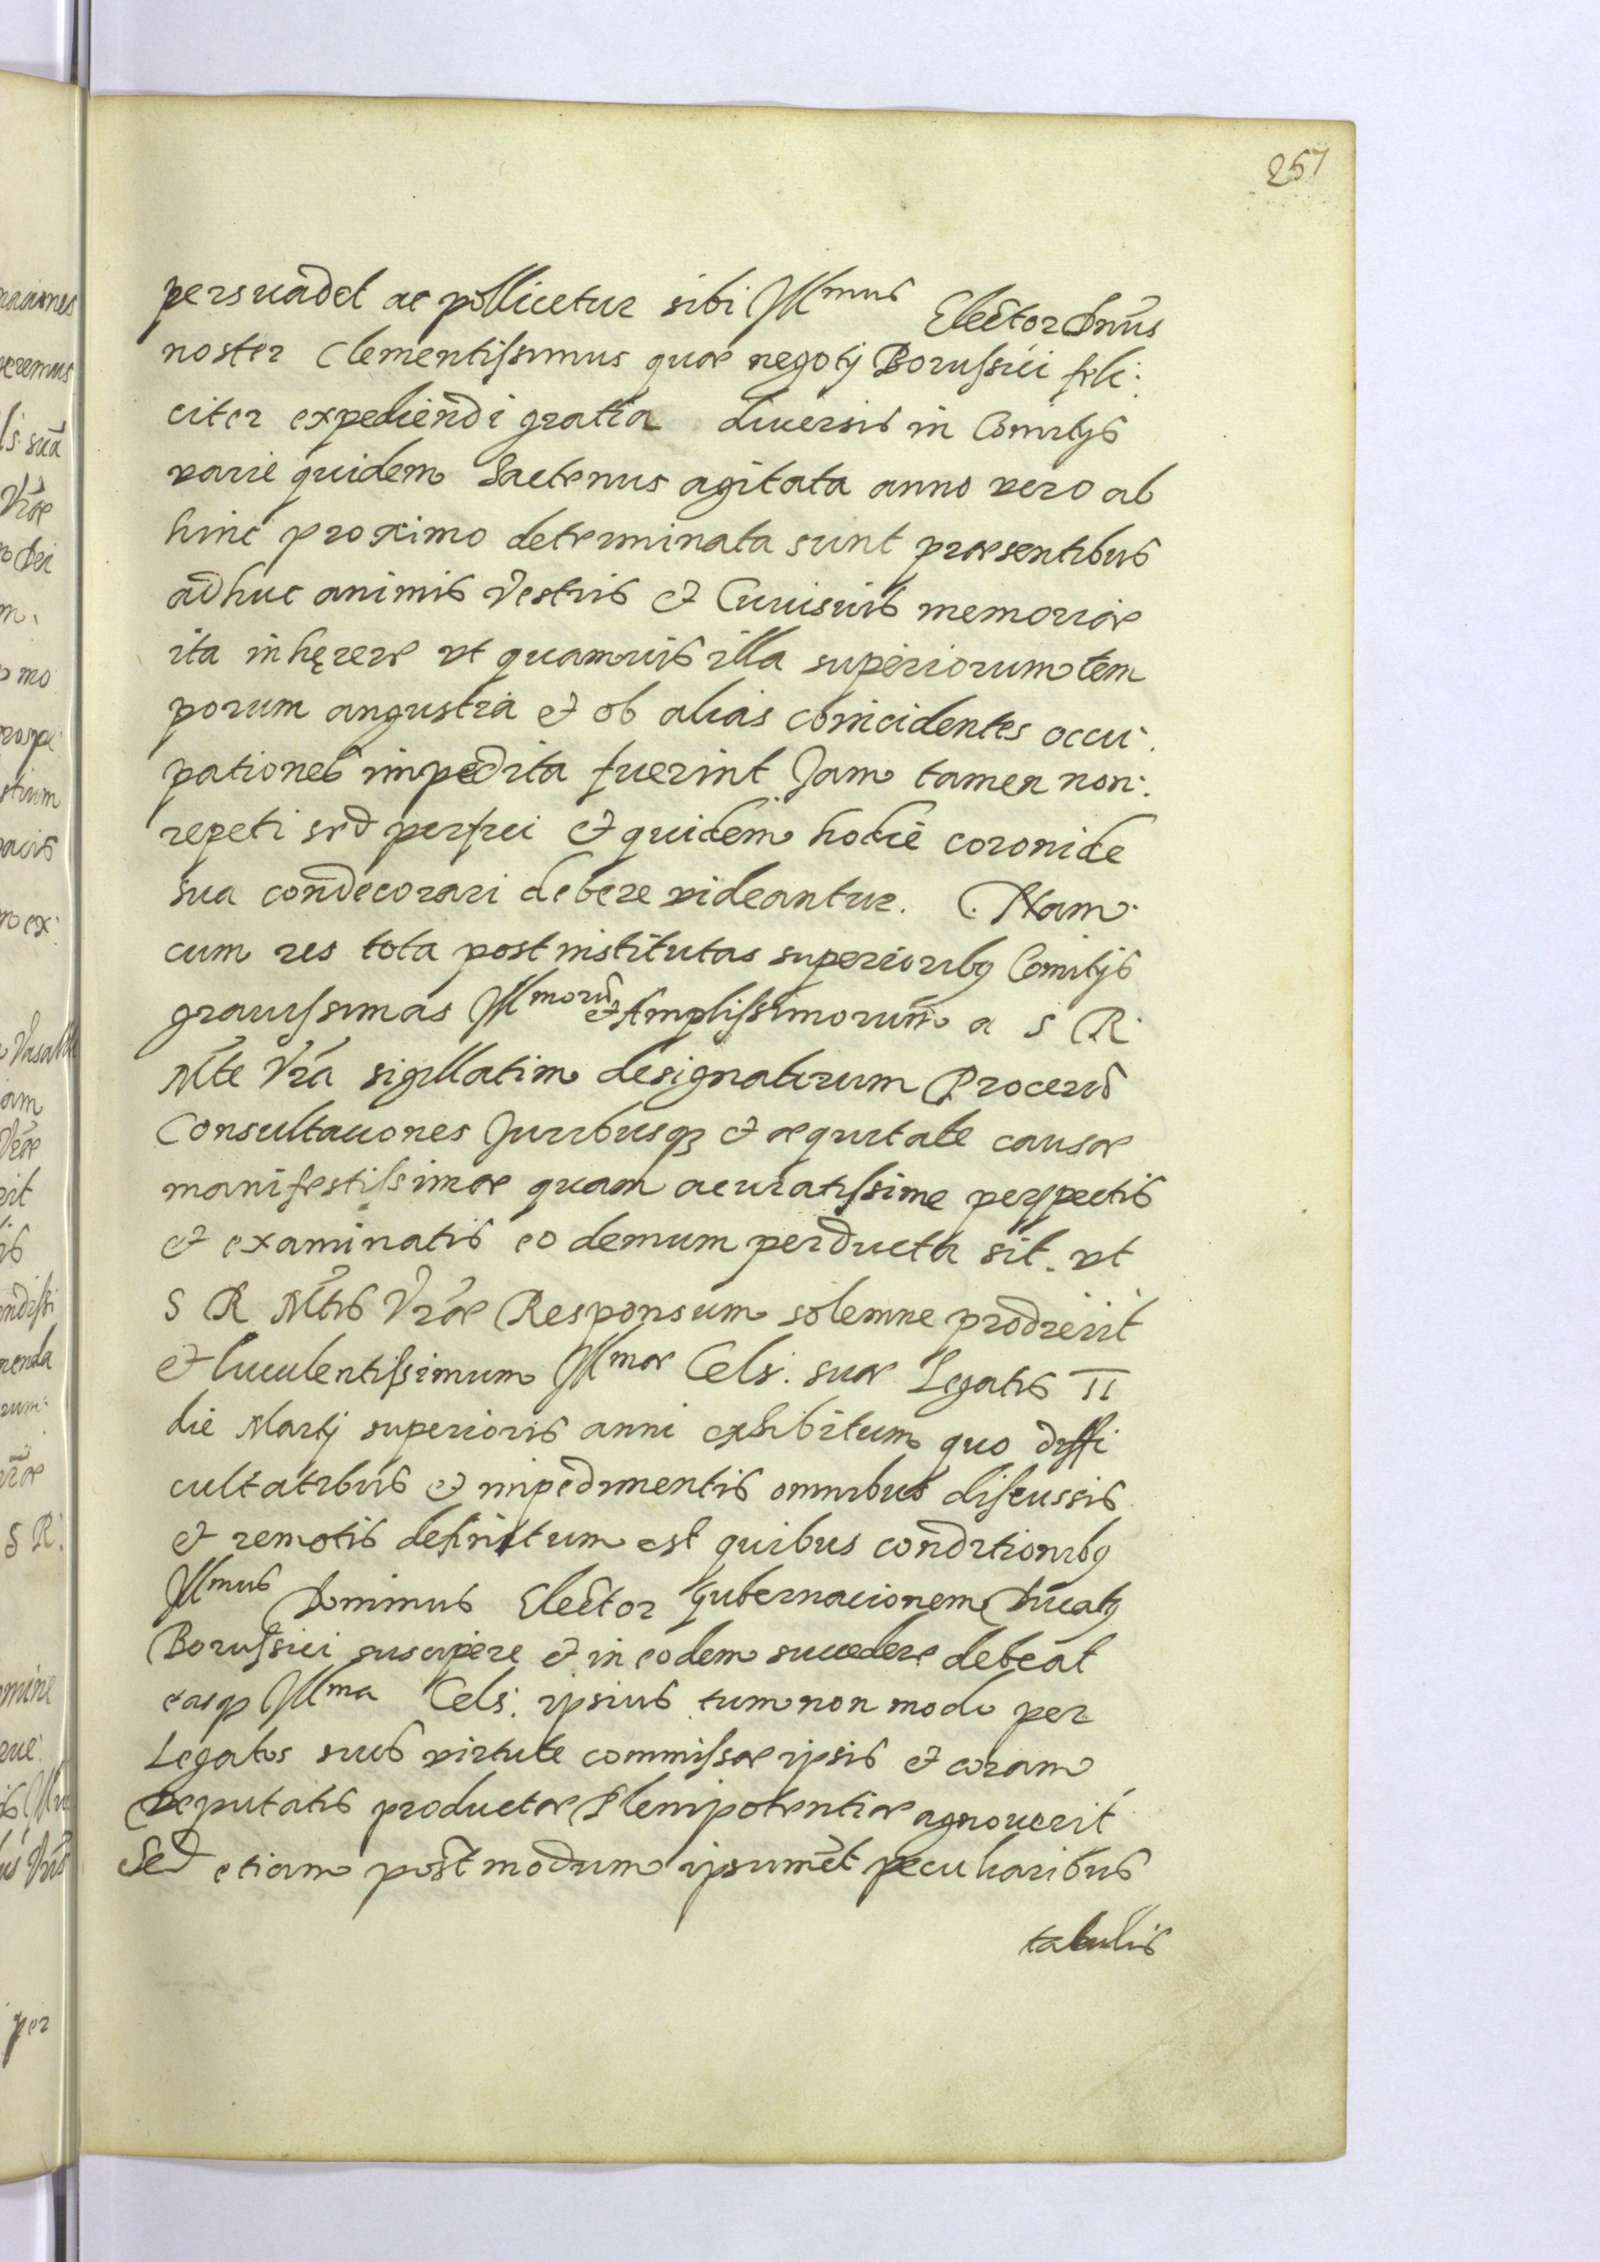 257
persuadet ac pollicetur sibi Illmus Elector Dnūs
noster Clementissimus quae negotij Borussici feli:
citer expediendi gratia diuersis in Comitijs
varie quidem hactenus agitata anno vero ab
hinc proximo determinata sunt praesentibus
adhuc animis Vestris et Cuiusuis memoriae
ita inhęrere vt quamuis illa superiorum tem
porum angustia et ob alias coincidentes occu:
pationes impedita fuerint Jam tamen non:
repeti sed perfici et quidem hodie coronide
sua condecorari debere videantur. Nam
cum res tota post institutas superioribq Comitijs
grauissimas Illmorū et Amplissimorum a S R
Mte Vra sigillatim designatorum Procerū
Consultationes Juribusq et aequitate causae
manifestissimae quam acuratissime perspectis
et examinatis eo demum perducta sit. vt
S R Mtis Vrae Responsum solemne prodierit
et luculentissimum Illmae Cels. suae Legatis II
die Martij superioris anni exhibitum quo diffi
cultatibus et impedimentis omnibus discussis
et remotis definitum est quibus conditionibq
Illmus Dominus Elector gubernacionem Ducatq
Borussici suscipere et in eodem succedere debeat
easq Illma Cels. ipsius tum non modo per
Legatos suos virtute commissae ipsis et coram
Deputatis productae Plenipotentiae agnouerit
Sed etiam postmodum ipsumet peculiaribus
tabulis